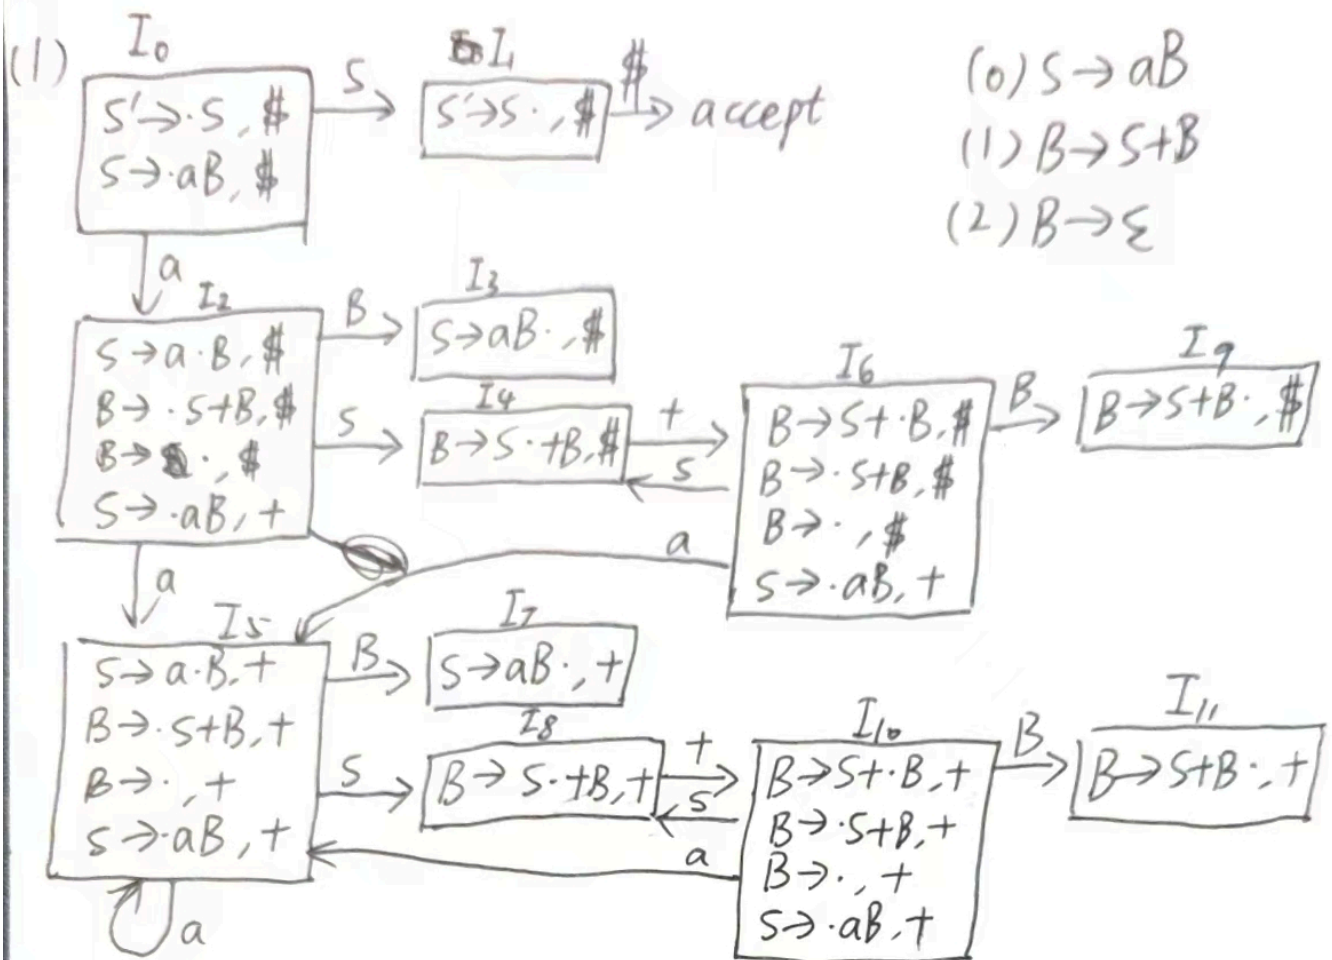 (1)
I₀
S'→·S, $
S→·aB, $
S
I₁
S'→S·, $
$
accept
(0) S→aB
(1) B→S+B
(2) B→ε
a
I₂
S→a·B, $
B→·S+B, $
B→·, $
S→·aB, +
B
I₃
S→aB·, $
S
I₄
B→S·+B, $
+
S
I₆
B→S+·B, $
B→·S+B, $
B→·, $
S→·aB, +
B
I₉
B→S+B·, $
a
a
I₅
S→a·B, +
B→·S+B, +
B→·, +
S→·aB, +
B
I₇
S→aB·, +
S
I₈
B→S·+B, +
+
S
a
I₁₀
B→S+·B, +
B→·S+B, +
B→·, +
S→·aB, +
B
I₁₁
B→S+B·, +
a